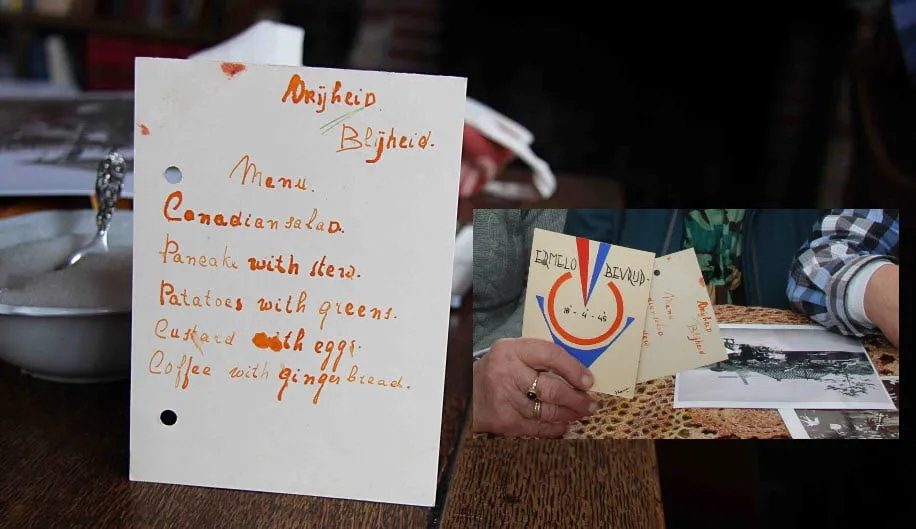 Vrijheid
Blijheid.
Menu.
Canadian salad.
Pancake with stew.
Patatoes with greens.
Custard with eggs.
Coffee with gingerbread.
ERMELO BEVRIJD.
18-4-45
Vrijheid
Blijheid
Menu